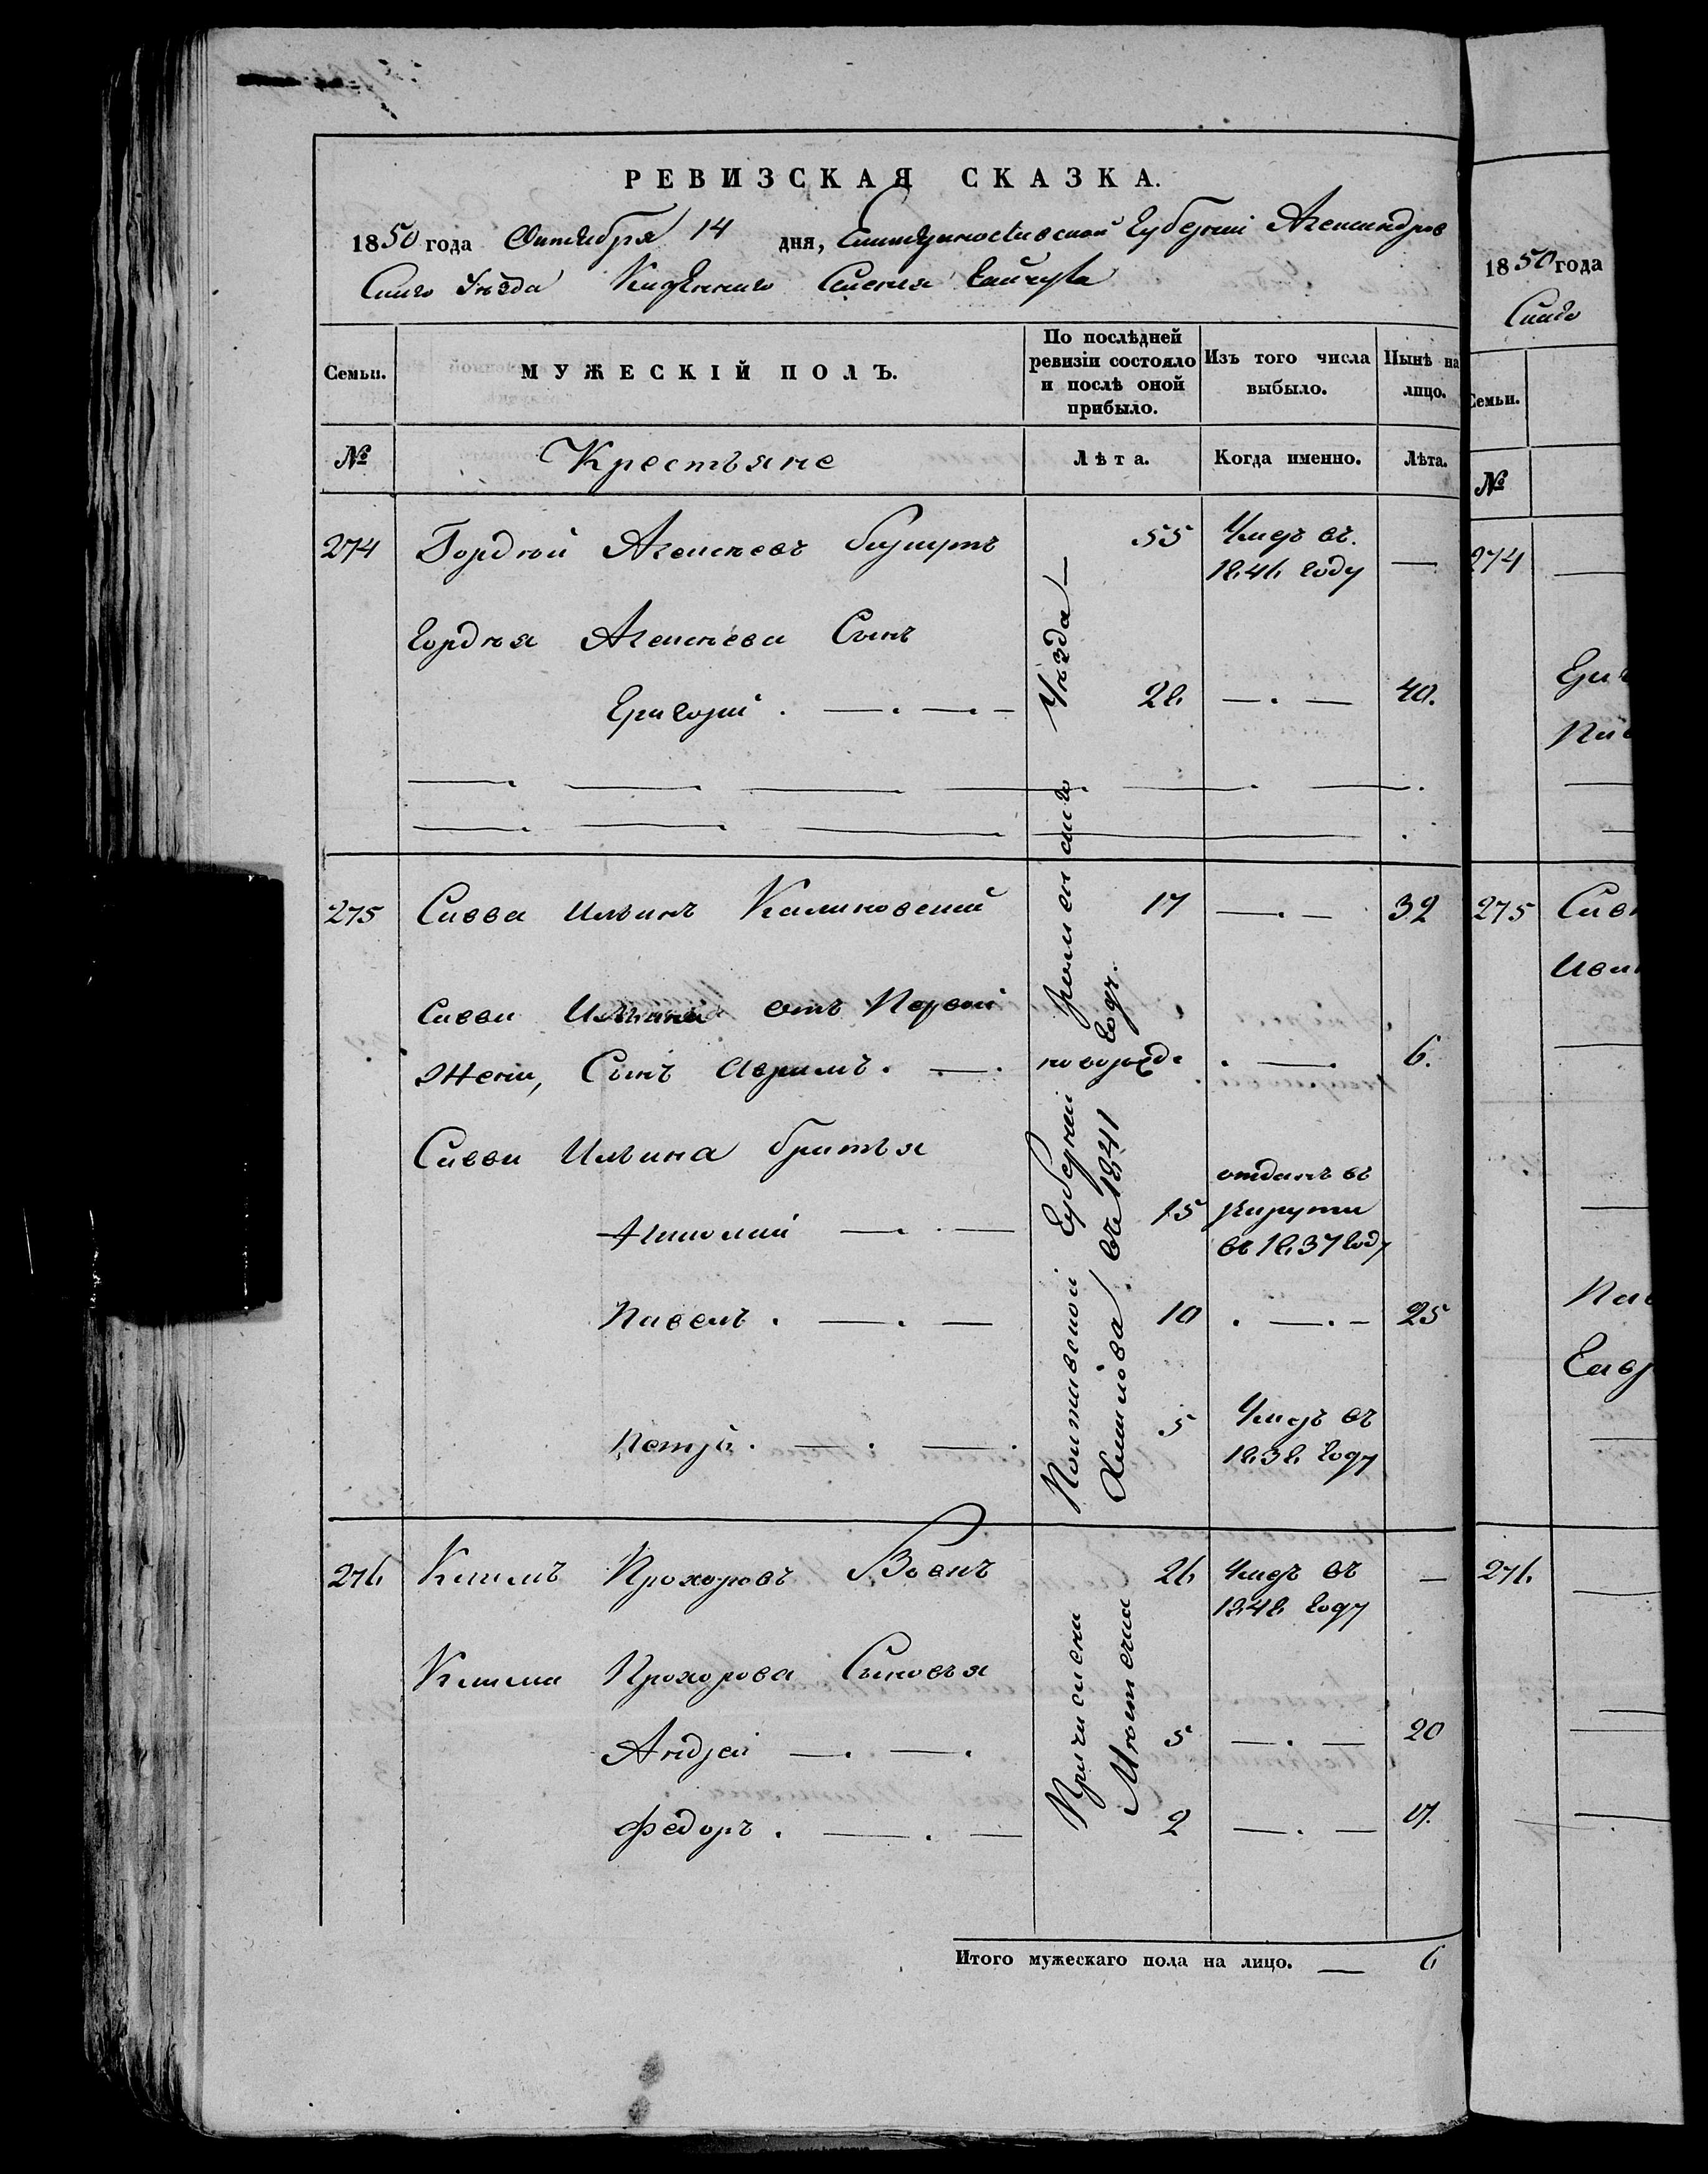 РЕВИЗСКАЯ СКАЗКА.
1850 года Октября 14 дня, Екатеринославской Губерніи Александров
скаго Уѣзда Казеннаго Селенія Гайчура
Семьи.
МУЖЕСКІЙ ПОЛЪ.
По послѣдней ревизіи состояло и послѣ оной прибыло.
Изъ того числа выбыло.
Нынѣ на лицо.
№
Крестьяне
Лѣта.
Когда именно.
Лѣта.
274 Гордѣй Алексѣевъ 55 Умеръ въ
1846 году —
Гордѣя Алексѣева Сынъ
Григорій . —. —. — 26 —. — 40.
275 Савва Ильинъ Калиновскій 17 —. — 32
Саввы Ильина отъ Первой
Жены, Сынъ Аврамъ. —. новорожд. . — 6.
Саввы Ильина братья
Николай —. — 15 отданъ въ
рекруты
въ 1837 году
Павелъ . —. — 10 . —. — 25
Петръ. —. —. 5 Умеръ въ
1838 году
276 Климъ Прохоровъ Вовкъ 26 Умеръ въ
1848 году —
Клима Прохорова Сыновья
Андрей —. —. 5 —. — 20
Федоръ . —. — 2 —. — 17.
Причислены Полтавской Губерніи Роменскаго Уѣзда —
Мѣстечка Хмѣлова въ 1841 году.
Итого мужескаго пола на лицо. — 6
1850 года
Скаго
Семьи.
№
274
275
276